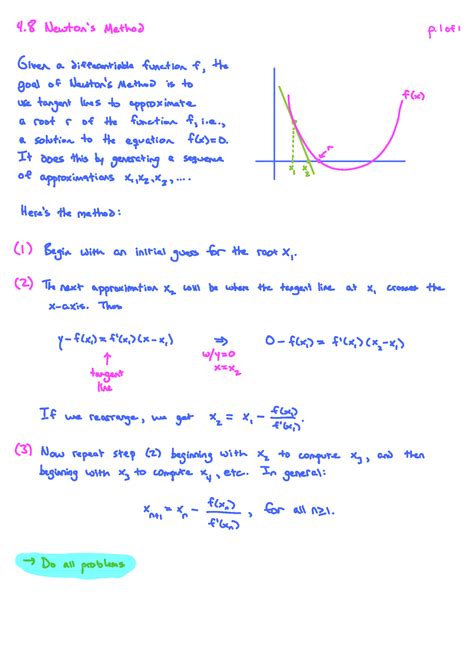 4.8 Newton's Method
p. 1 of 1
Given a differentiable function f, the
goal of Newton's Method is to
use tangent lines to approximate
a root r of the function f, i.e.,
a solution to the equation f(x)=0.
It does this by generating a sequence
of approximations x₁, x₂, x₃, ....
f(x)
r
x₁ x₂
Here's the method:
(1) Begin with an initial guess for the root x₁.
(2) The next approximation x₂ will be where the tangent line at x₁ crosses the
x-axis. Thus
y - f(x₁) = f'(x₁)(x - x₁) ⇒ 0 - f(x₁) = f'(x₁)(x₂ - x₁)
↑ w/y=0
tangent x=x₂
line
If we rearrange, we get x₂ = x₁ - f(x₁)/f'(x₁).
(3) Now repeat step (2) beginning with x₂ to compute x₃, and then
beginning with x₃ to compute x₄, etc. In general:
xₙ₊₁ = xₙ - f(xₙ)/f'(xₙ), for all n≥1.
→ Do all problems